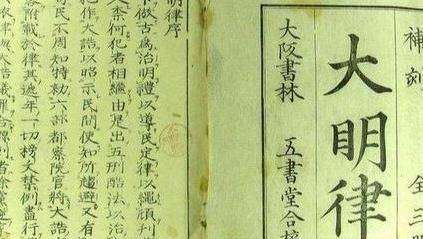 補刻 全三
大明律
大阪書林 五書堂合
明律序
下倣古為治明禮以導民定律以繩頑刊
柰何犯者相繼由是出五刑酷法以治
犯作大誥以昭示民間使知所趨避又有
民不周知特勅六部都察院官將大誥
附載於律其遞年一切榜文禁例盡行
依律與大誥議罪